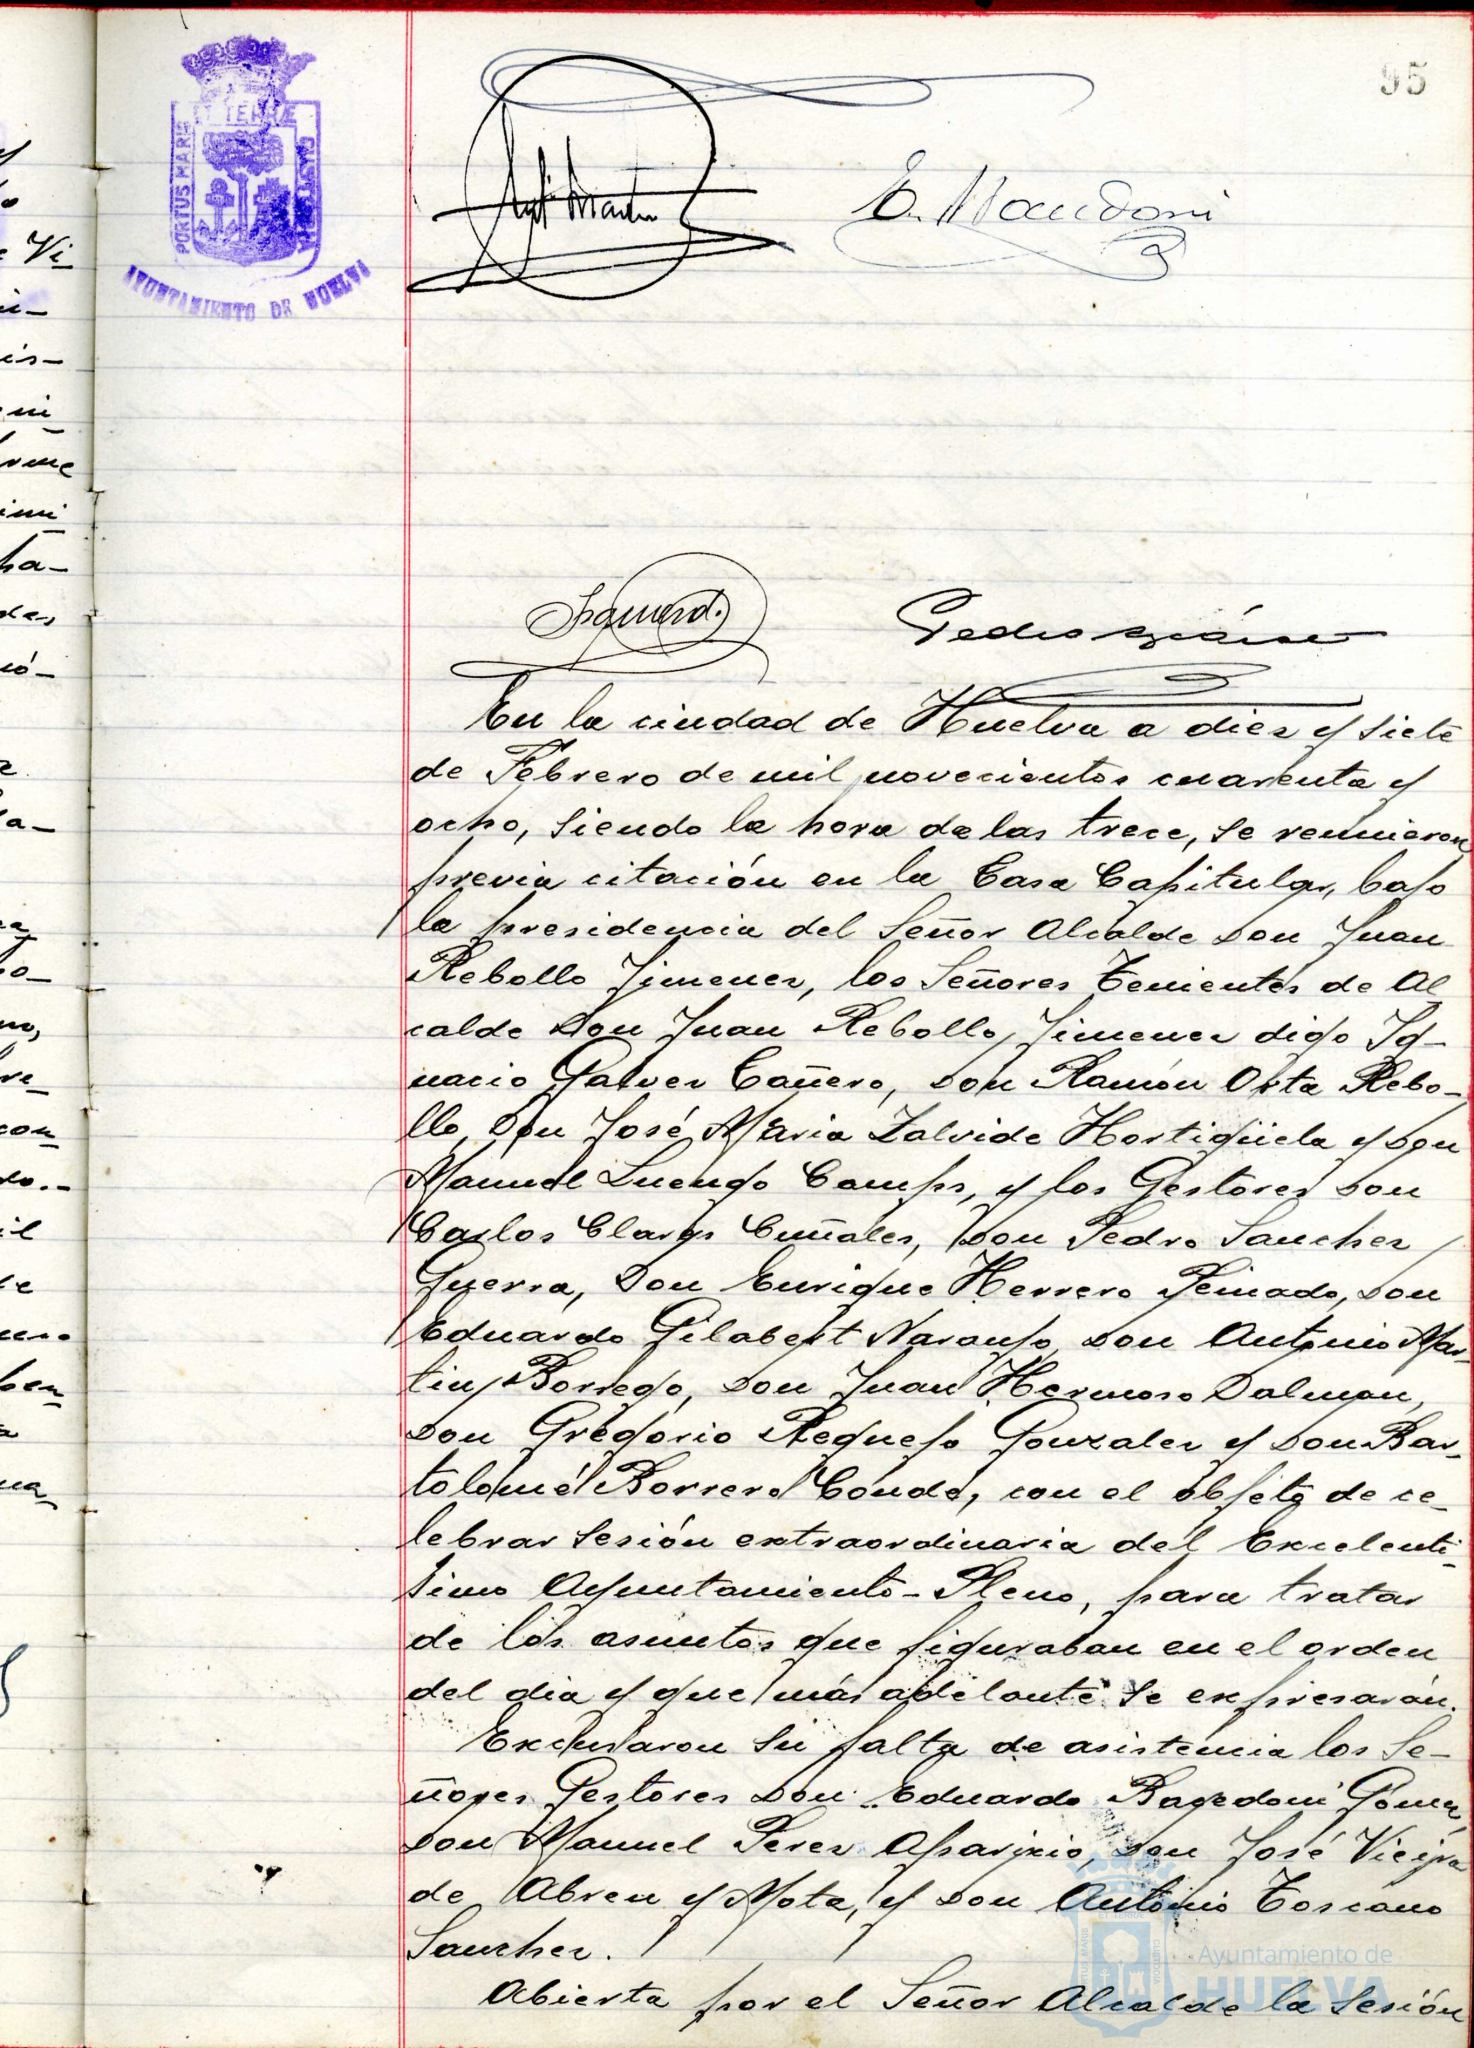 95
PORTUS MARIS ET TERRÆ CUSTODIA
AYUNTAMIENTO DE HUELVA
Izquierd.
Pedro
En la ciudad de Huelva a diez y siete
de Febrero de mil novecientos cuarenta y
ocho, siendo la hora de las trece, se reunieron
previa citación en la Casa Capitular, bajo
la presidencia del Señor Alcalde Don Juan
Rebollo Jimenez, los Señores Tenientes de Al-
calde Don Juan Rebollo Jimenez digo Ig-
nacio Galvez Cañero, Don Ramón Orta Rebo-
llo, Don José Maria Zalvide Hortigüela y Don
Manuel Luengo Camps, y los Gestores Don
Carlos Claros Cuñales, Don Pedro Sanchez
Guerra, Don Enrique Herrero Peinado, Don
Eduardo Gilabert Naranjo, Don Antonio Mar-
tin Borrego, Don Juan Hermoso Dalman,
Don Gregorio Requejo Gonzalez y Don Bar-
tolomé Borrero Conde, con el objeto de ce-
lebrar sesión extraordinaria del Excelenti-
simo Ayuntamiento-Pleno, para tratar
de los asuntos que figuraban en el orden
del dia y que más adelante se expresarán.
Excusaron su falta de asistencia los Se-
ñores Gestores Don Eduardo Gómez,
Don Manuel Perez Aparicio, Don José Vieira
de Abreu y Mota, y Don Antonio Toscano
Sanchez.
Abierta por el Señor Alcalde la sesión
Ayuntamiento de
HUELVA